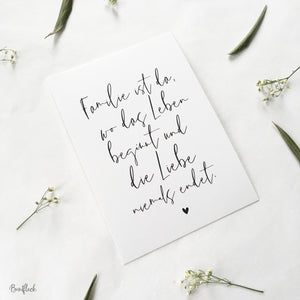 Familie ist da,
wo das Leben
beginnt und
die Liebe
niemals endet.
Bomfleck